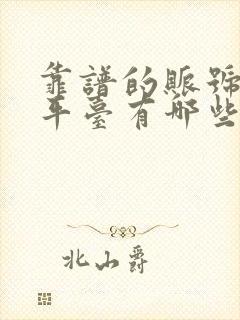 靠譜的賬號
平臺有哪些
北山爵